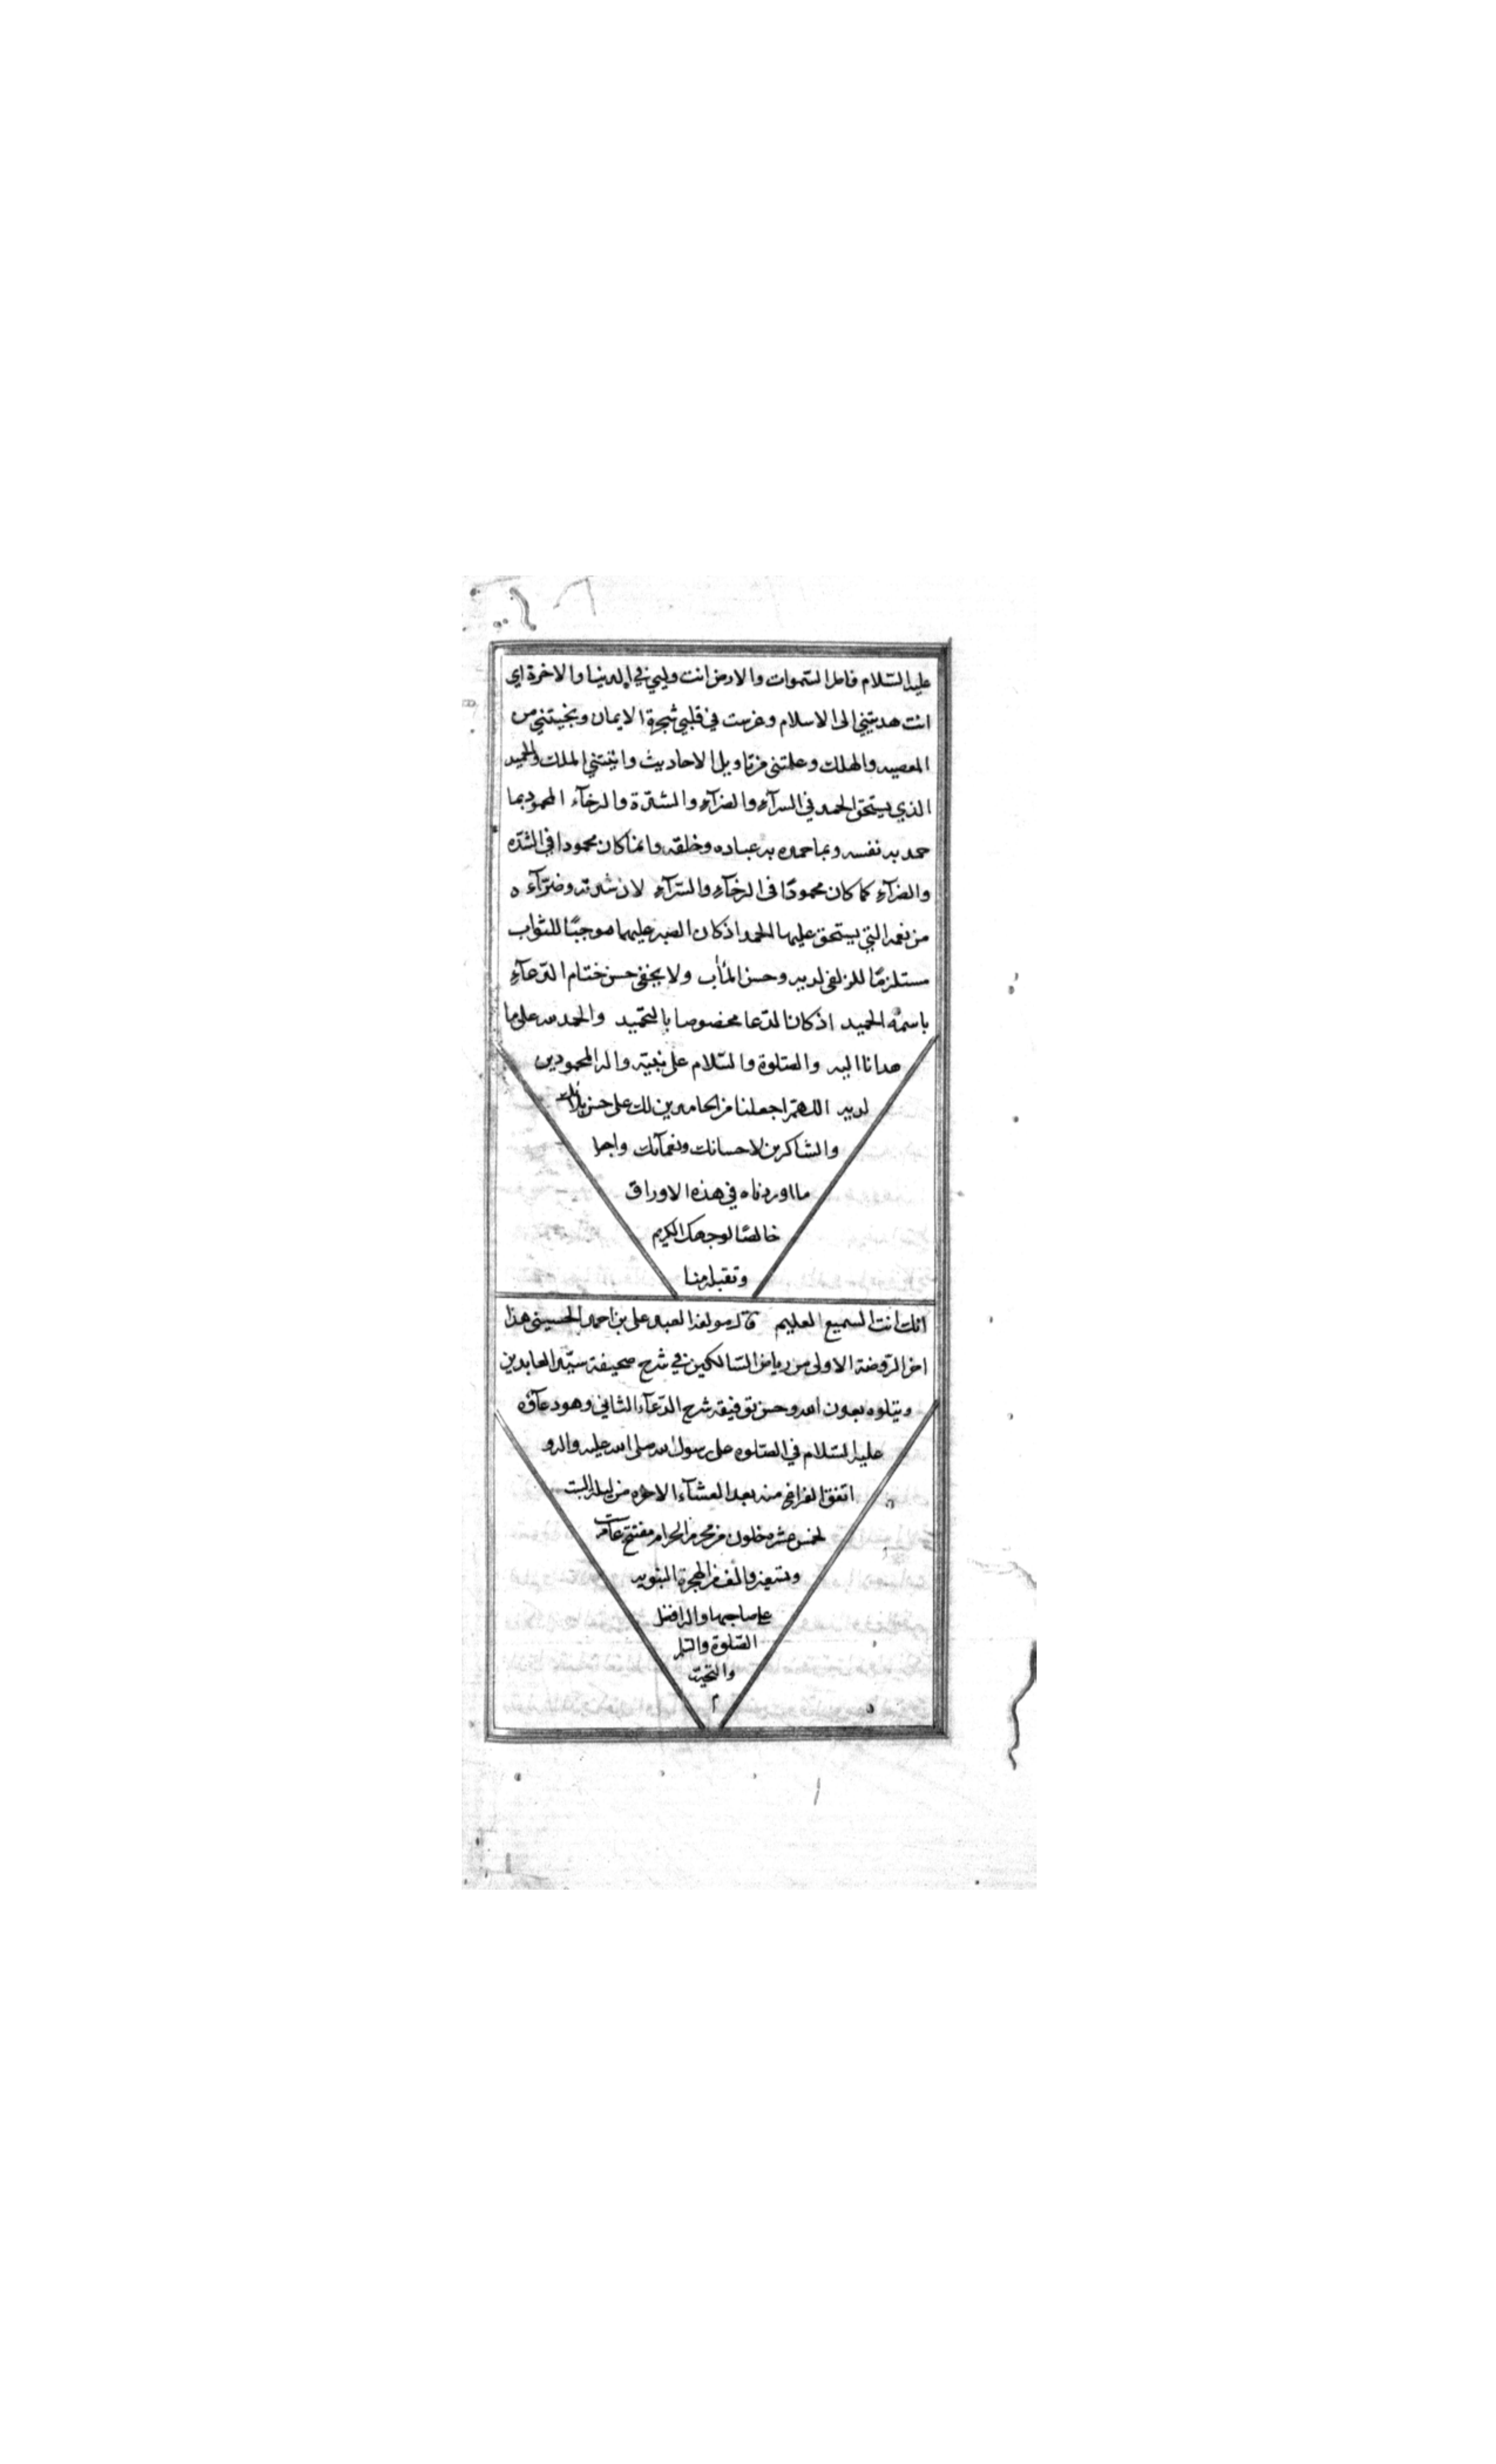 عليه السّلام فاطر السّموات والارض انت وليي في الدنيا والاخرة اي
انت هديتني الى الاسلام وغرست في قلبي شجرة الايمان ونجيتني من
المعصيه والهلك وعلمتني من تاويل الاحاديث واتيتني الملك والحميد
الذي يستحق الحمد في السرآء والضرآء والشدّة والرخآء المحمود بما
حمد به نفسه وبما حمده به عباده وخلقه وانما كان محمودا في الشدّه
والضرآء كما كان محمودًا في الرخآء والسّرآء لان شدته وضرّآءه
من نعمه التي يستحق عليها الحمد اذ كان الصبر عليهما موجبًا للثواب
مستلزمًا للزلفى لديه وحسن المأب ولا يخفى حسن ختام الدّعآء
باسمه الحميد اذ كان الدّعا مخصوصا بالتحميد والحمد لله على ما
هدانا اليه والصّلوة والسّلام على نبيّه واله المحمودين
لديه اللهمّ اجعلنا من الحامدين لك على حسن بلائك
والشاكرين لاحسانك ونعمآئك واجعل
ما اوردناه في هذه الاوراق
خالصًا لوجهك الكريم
وتقبل منا
انك انت السميع العليم قال مولفه العبد علي بن احمد الحسيني هذا
اخر الرّوضة الاولى من رياض السّالكين في شرح صحيفة سيّد العابدين
ويتلوه بعون الله وحسن توفيقه شرح الدّعآء الثاني وهو دعآؤه
عليه السّلام في الصّلوه على رسول الله صلى الله عليه واله و
اتفق الفراغ منه بعد العشآء الاخره من ليله السبت
لخمس عشره خلون من محرم الحرام مفتتح عام ست
وتسعين والف من الهجرة النبويه
على صاجبها واله افضل
الصّلوة والسّلم
والتحيّة
م